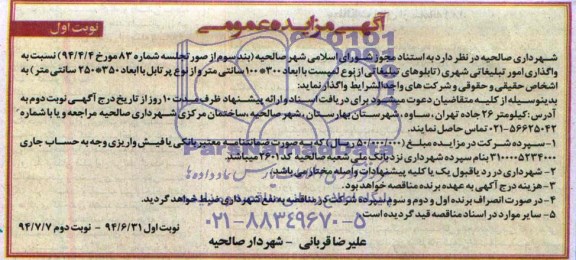 آگهی مزایده عمومی
نوبت اول
شهرداری صالحیه در نظر دارد به استناد مجوز شورای اسلامی شهر صالحیه (بند سوم از صورتجلسه شماره ۸۳ مورخ ۹۴/۴/۴) نسبت به
واگذاری امور تبلیغاتی شهری (تابلوهای تبلیغاتی از نوع لمپست با ابعاد ۳۰۰*۱۰۰ سانتی متر و از نوع پرتابل با ابعاد ۳۵۰*۲۵۰ سانتی متر) به
اشخاص حقیقی و حقوقی و شرکت های واجد الشرایط واگذار نماید:
بدینوسیله از کلیه متقاضیان دعوت میشود برای دریافت اسناد و ارائه پیشنهاد ظرف مدت ۱۰ روز از تاریخ درج آگهی نوبت دوم به
آدرس: کیلومتر ۲۶ جاده تهران، ساوه، شهرستان بهارستان، شهر صالحیه، ساختمان مرکزی شهرداری صالحیه مراجعه و یا با شماره
۰۲۱-۵۶۶۲۵۰۴۲ تماس حاصل نمایند.
۱- سپرده شرکت در مزایده مبلغ (۵۰/۰۰۰/۰۰۰ ریال) که به صورت ضمانتنامه معتبر بانکی یا فیش واریزی وجه به حساب جاری
۳۱۰۰۰۰۵۲۳۴۰۰۰ بنام سپرده شهرداری نزد بانک ملی شعبه صالحیه کد ۲۶۰۱ میباشد
۲- شهرداری در رد یا قبول یک یا کلیه پیشنهادات واصله مختار می باشد.
۳- هزینه درج آگهی به عهده برنده مناقصه خواهد بود.
۴- در صورت انصراف برنده اول و دوم و سوم سپرده شرکت در مناقصه به نفع شهرداری ضبط خواهد گردید.
۵- سایر موارد در اسناد مناقصه قید گردیده است.
نوبت اول ۹۴/۶/۳۱ - نوبت دوم ۹۴/۷/۷
علیرضا قربانی - شهردار صالحیه
ParsNamadData
۰۲۱-۸۸۳۴۹۶۷۰-۵